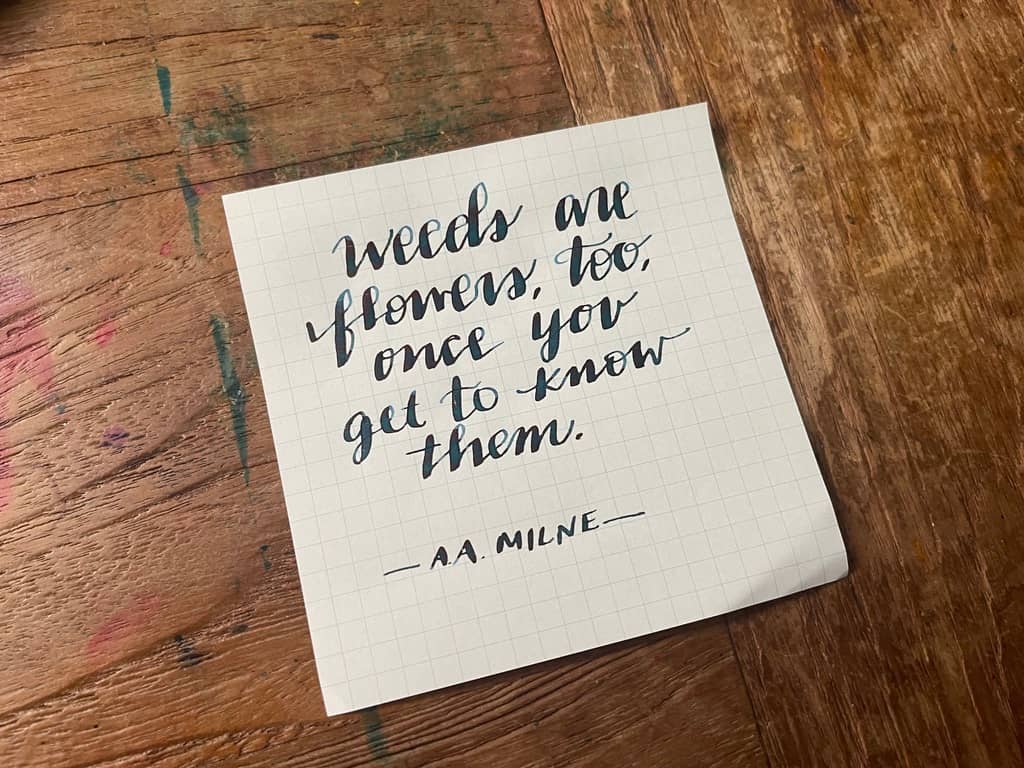 weeds are
flowers, too,
once you
get to know
them.
— A.A. MILNE —